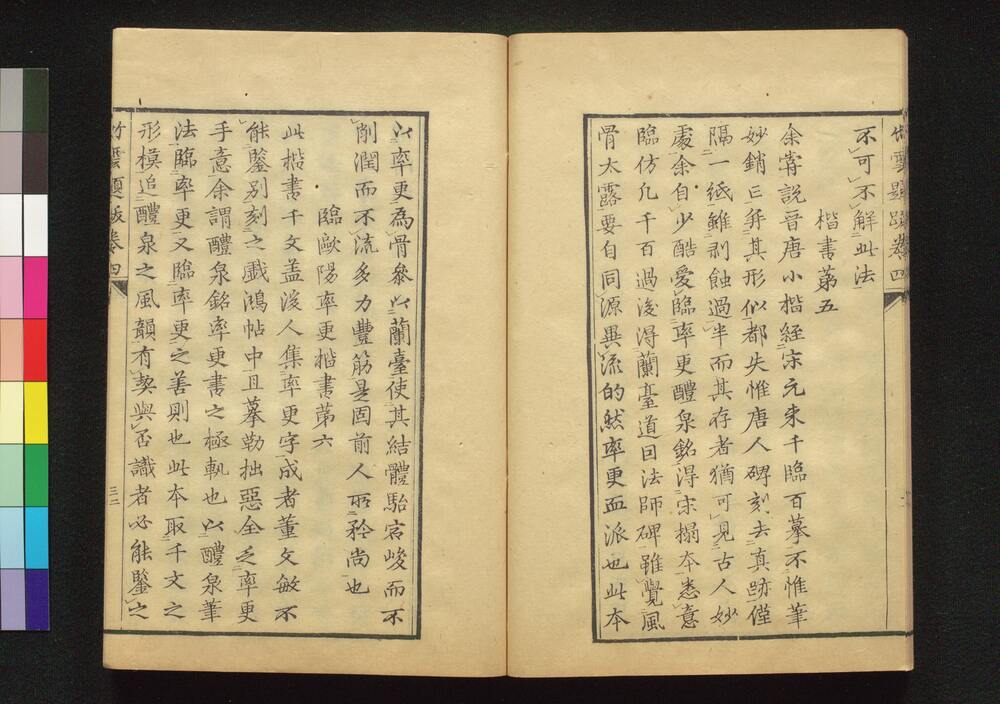 竹雲題跋卷四
不可不解此法
楷書第五
余嘗說晉唐小楷經宋元來千臨百摹不惟筆
妙銷亡并其形似都失惟唐人碑刻去真跡僅
隔一紙雖剥蝕過半而其存者猶可見古人妙
處余自少酷愛臨率更醴泉銘得宋搨本悉意
臨仿凡千百過後得蘭臺道因法師碑雖覺風
骨太露要自同源異流的然率更血派也此本
以率更為骨參以蘭臺使其結體駘宕峻而不
削潤而不流多力豐筋是固前人所矜尚也
臨歐陽率更楷書第六
此楷書千文盖後人集率更字成者董文敏不
能鑒别刻之戲鴻帖中且摹勒拙惡全乏率更
手意余謂醴泉銘率更書之極軌也以醴泉筆
法臨率更又臨率更之善則也此本取千文之
形模追醴泉之風韻有契與否識者必能鑒之
竹雲題跋卷四
三二